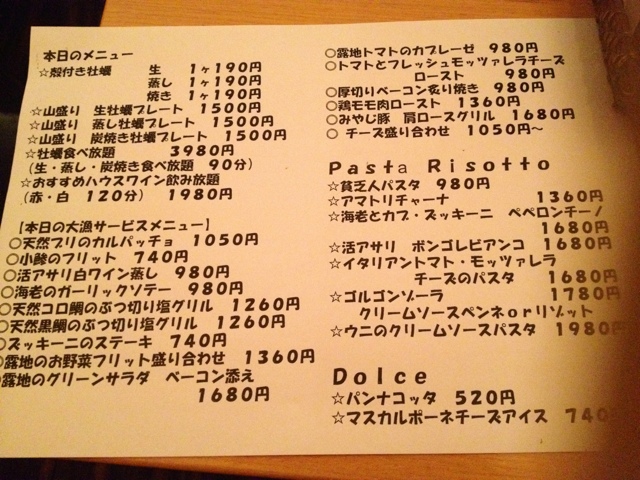 本日のメニュー
☆殻付き牡蠣 生 1ヶ190円
蒸し 1ヶ190円
焼き 1ヶ190円
☆山盛り 生牡蠣プレート 1500円
☆山盛り 蒸し牡蠣プレート 1500円
☆山盛り 炭焼き牡蠣プレート 1500円
☆牡蠣食べ放題 3980円
(生・蒸し・炭焼き食べ放題 90分)
☆おすすめハウスワイン飲み放題
(赤・白 120分) 1980円
【本日の大漁サービスメニュー】
○天然ブリのカルパッチョ 1050円
○小鯵のフリット 740円
○活アサリ白ワイン蒸し 980円
○海老のガーリックソテー 980円
○天然コロ鯛のぶつ切り塩グリル 1260円
○天然黒鯛のぶつ切り塩グリル 1260円
○ズッキーニのステーキ 740円
○露地のお野菜フリット盛り合わせ 1360円
○露地のグリーンサラダ ベーコン添え
1680円
○露地トマトのカプレーゼ 980円
○トマトとフレッシュモッツァレラチーズ
ロースト 980円
○厚切りベーコン炙り焼き 980円
○鶏モモ肉ロースト 1360円
○みやじ豚 肩ロースグリル 1680円
○ チーズ盛り合わせ 1050円~
Pasta Risotto
☆貧乏人パスタ 980円
☆アマトリチャーナ 1360円
☆海老とカブ・ズッキーニ ペペロンチーノ
1680円
☆活アサリ ボンゴレビアンコ 1680円
☆イタリアントマト・モッツァレラ
チーズのパスタ 1680円
☆ゴルゴンゾーラ 1780円
クリームソースペンネorリゾット
☆ウニのクリームソースパスタ 1980円
Dolce
☆パンナコッタ 520円
☆マスカルポーネチーズアイス 740